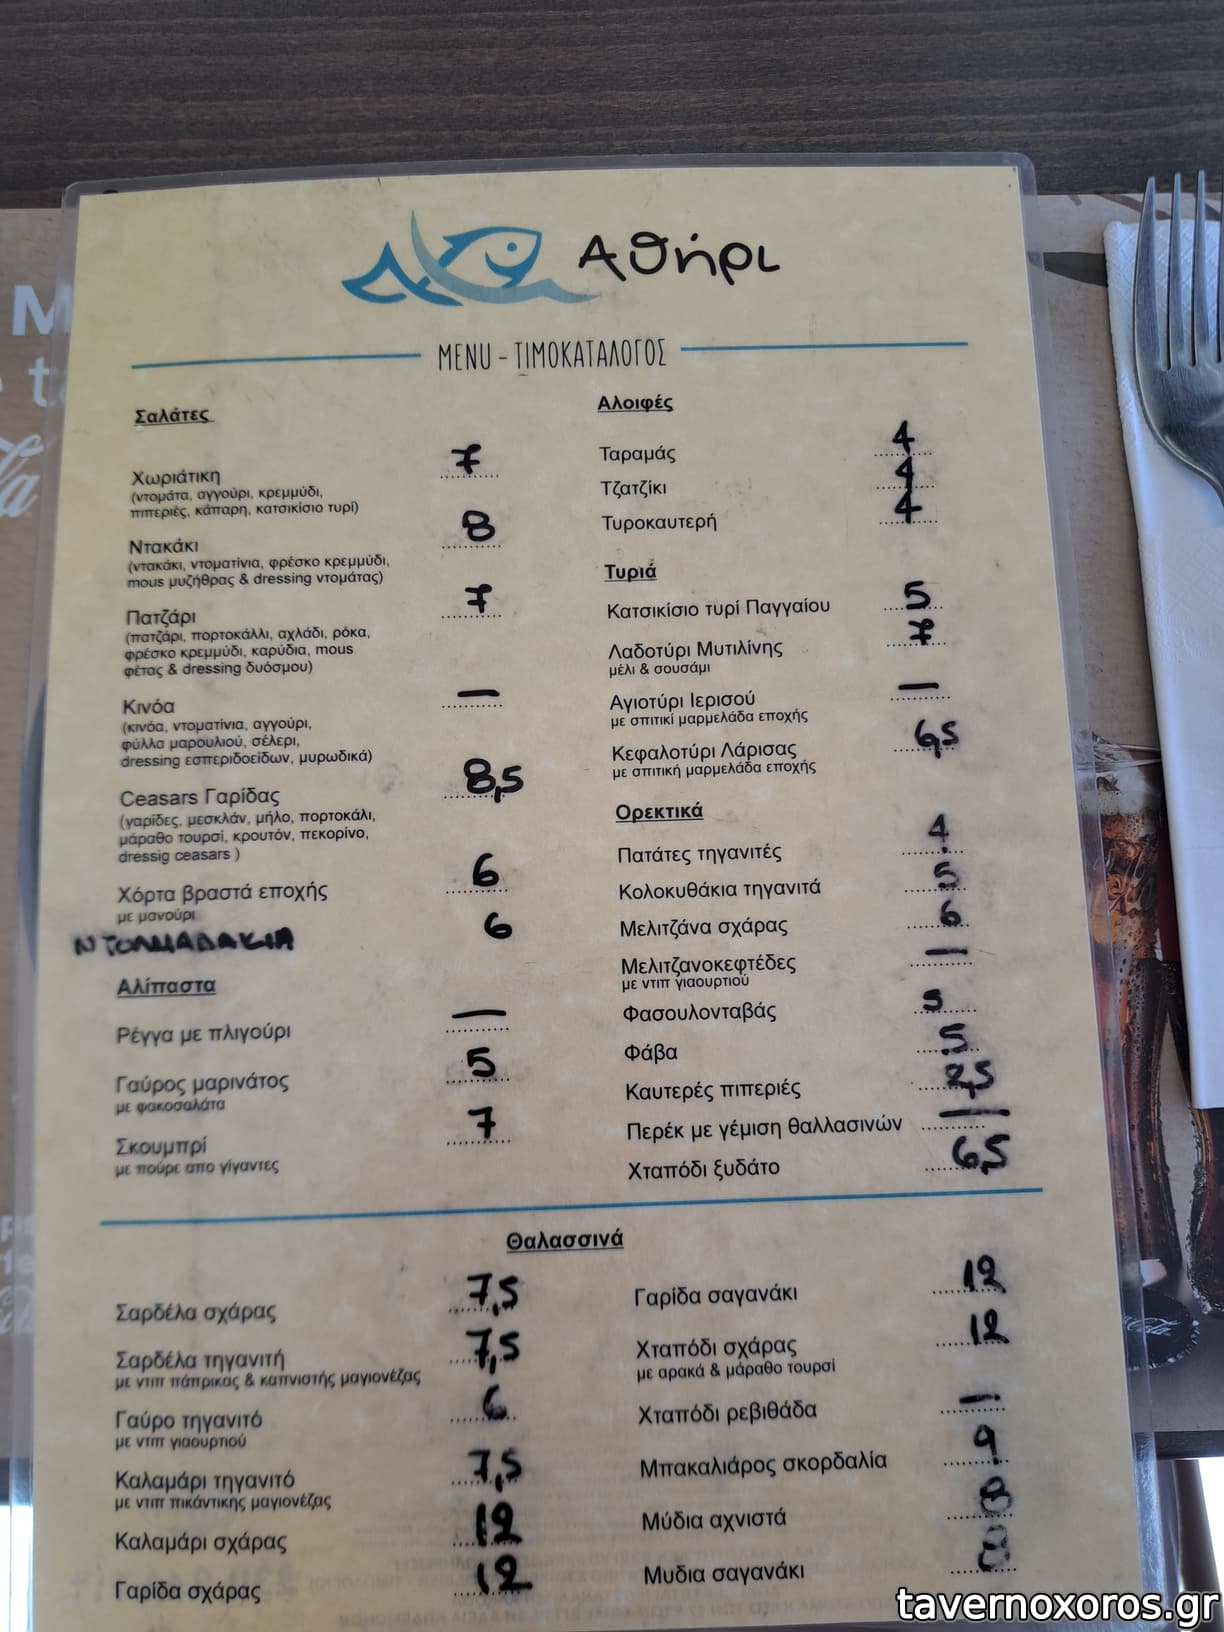 Αθήρι
MENU - ΤΙΜΟΚΑΤΑΛΟΓΟΣ
Σαλάτες
Χωριάτικη 7
(ντομάτα, αγγούρι, κρεμμύδι,
πιπεριές, κάπαρη, κατσικίσιο τυρί)
Ντακάκι 8
(ντακάκι, ντοματίνια, φρέσκο κρεμμύδι,
mous μυζήθρας & dressing ντομάτας)
Πατζάρι 7
(πατζάρι, πορτοκάλλι, αχλάδι, ρόκα,
φρέσκο κρεμμύδι, καρύδια, mous
φέτας & dressing δυόσμου)
Κινόα —
(κινόα, ντοματίνια, αγγούρι,
φύλλα μαρουλιού, σέλερι,
dressing εσπεριδοείδων, μυρωδικά)
Ceasars Γαρίδας 8,5
(γαρίδες, μεσκλάν, μήλο, πορτοκάλι,
μάραθο τουρσί, κρουτόν, πεκορίνο,
dressig ceasars )
Χόρτα βραστά εποχής 6
με μανούρι
ΝΤΟΛΜΑΔΑΚΙΑ 6
Αλίπαστα
Ρέγγα με πλιγούρι —
Γαύρος μαρινάτος 5
με φακοσαλάτα
Σκουμπρί 7
με πούρε απο γίγαντες
Αλοιφές
Ταραμάς 4
Τζατζίκι 4
Τυροκαυτερή 4
Τυριά
Κατσικίσιο τυρί Παγγαίου 5
Λαδοτύρι Μυτιλίνης 7
μέλι & σουσάμι
Αγιοτύρι Ιερισού —
με σπιτικί μαρμελάδα εποχής
Κεφαλοτύρι Λάρισας 6,5
με σπιτική μαρμελάδα εποχής
Ορεκτικά
Πατάτες τηγανιτές 4
Κολοκυθάκια τηγανιτά 5
Μελιτζάνα σχάρας 6
Μελιτζανοκεφτέδες —
με ντιπ γιαουρτιού
Φασουλονταβάς 5
Φάβα 5
Καυτερές πιπεριές 2,5
Περέκ με γέμιση θαλλασινών —
Χταπόδι ξυδάτο 6,5
Θαλασσινά
Σαρδέλα σχάρας 7,5
Σαρδέλα τηγανιτή 7,5
με ντιπ πάπρικας & καπνιστής μαγιονέζας
Γαύρο τηγανιτό 6
με ντιπ γιαουρτιού
Καλαμάρι τηγανιτό 7,5
με ντιπ πικάντικης μαγιονέζας
Καλαμάρι σχάρας 12
Γαρίδα σχάρας 12
Γαρίδα σαγανάκι 12
Χταπόδι σχάρας 12
με αρακά & μάραθο τουρσί
Χταπόδι ρεβιθάδα —
Μπακαλιάρος σκορδαλία 9
Μύδια αχνιστά 8
Μυδια σαγανάκι 8
tavernoxoros.gr